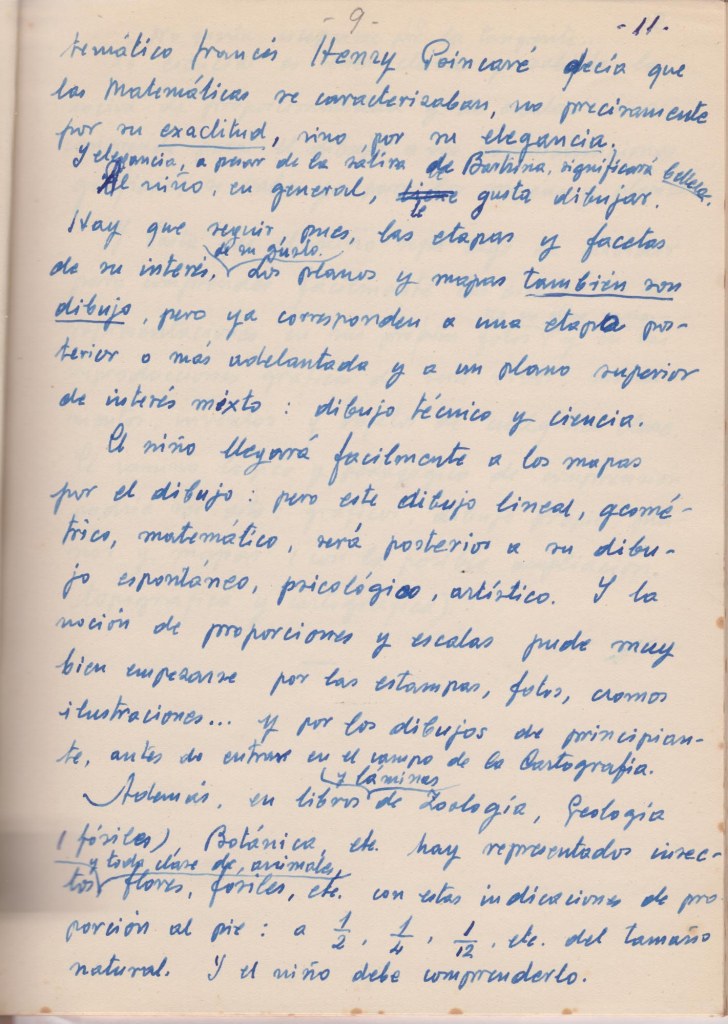 - 9 -
- 11 -
temático francés Henry Poincaré decía que
las Matemáticas se caracterizaban, no precisamente
por su exactitud, sino por su elegancia.
Y elegancia, a pesar de la sátira de significará belleza.
Al niño, en general, tiene le gusta dibujar.
Hay que seguir, pues, las etapas y facetas
de su gusto.
de su interés, Los planos y mapas también son
dibujo, pero ya corresponden a una etapa pos-
terior o más adelantada y a un plano superior
de interés mixto : dibujo técnico y ciencia.
El niño llegará facilmente a los mapas
por el dibujo : pero este dibujo lineal, geomé-
trico, matemático, será posterior a su dibu-
jo espontáneo, psicológico, artístico. Y la
noción de proporciones y escalas puede muy
bien empezarse por las estampas, fotos, cromos
ilustraciones... y por los dibujos de principian-
te, antes de entrar en el campo de la Cartografía.
y láminas
Además, en libros de Zoología, Geología
(fósiles) Botánica, etc. hay representados insec-
y toda clase de animales,
tos flores, fósiles, etc. con estas indicaciones de pro-
porción al pie : a 1/2, 1/4, 1/12, etc. del tamaño
natural. Y el niño debe comprenderlo.